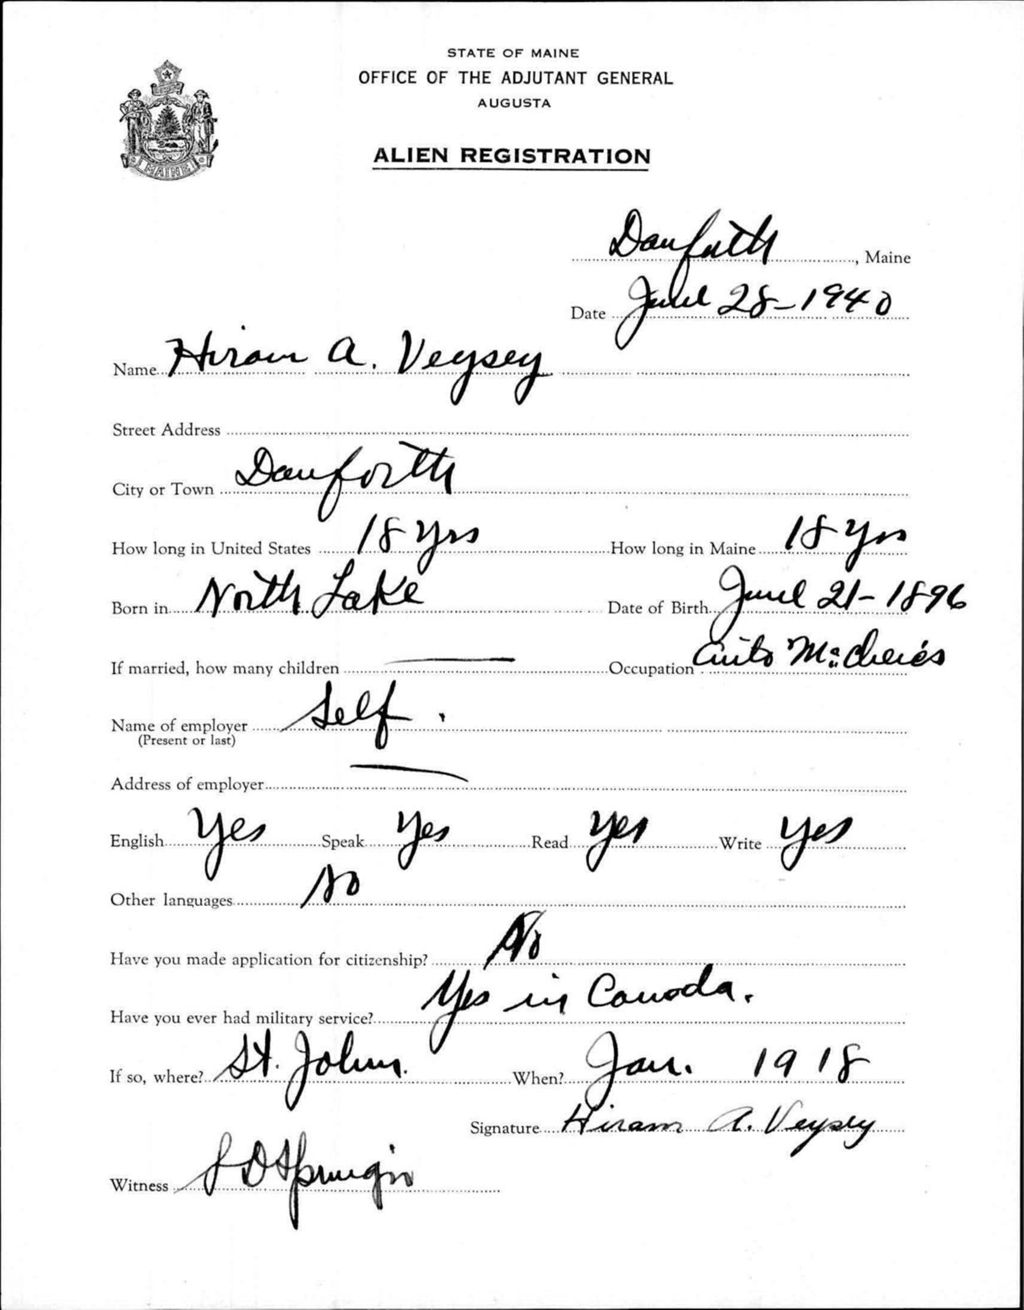 STATE OF MAINE
OFFICE OF THE ADJUTANT GENERAL
AUGUSTA
ALIEN REGISTRATION
MAINE
Danforth, Maine
Date June 28-1940
Name Hiram A. Veysey
Street Address
City or Town Danforth
How long in United States 18 Yrs How long in Maine 18 Yrs
Born in North Lake Date of Birth June 21-1896
If married, how many children — Occupation
Name of employer Self.
(Present or last)
Address of employer —
English Yes Speak Yes Read Yes Write Yes
Other languages No
Have you made application for citizenship? No
Have you ever had military service? Yes in Canada.
If so, where? St. John. When? Jan. 1918
Signature Hiram A. Veysey
Witness